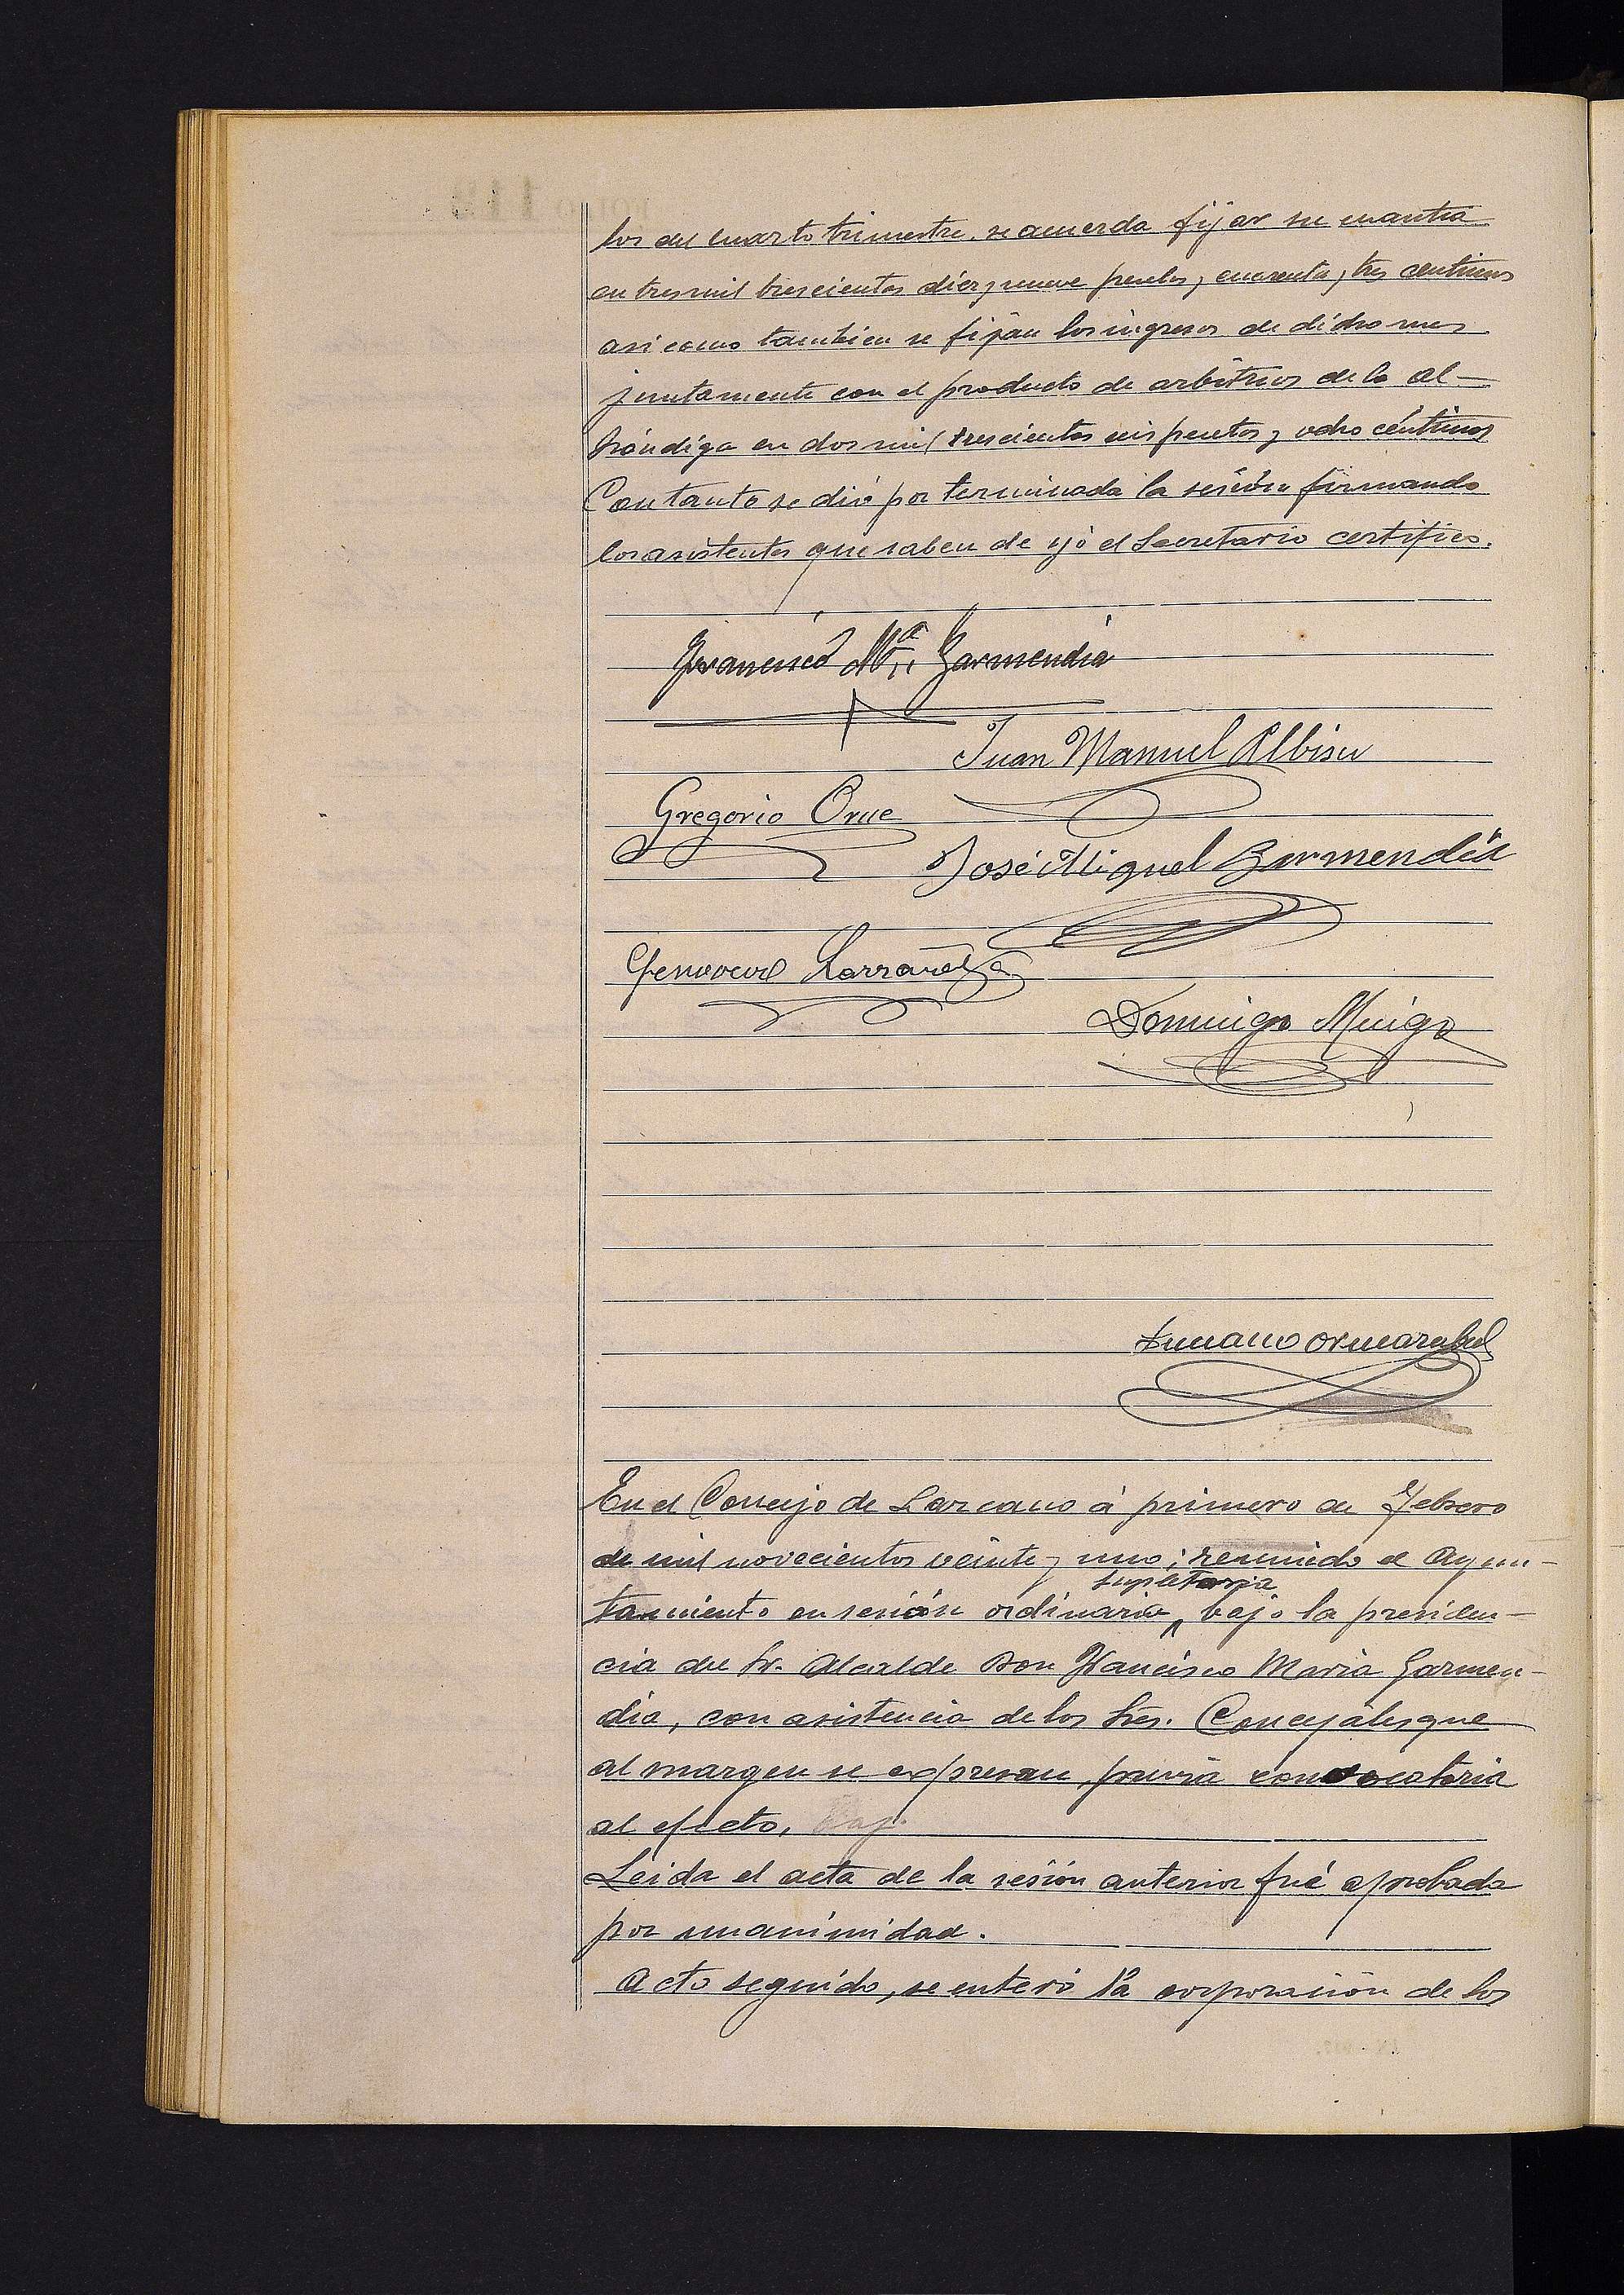 los del cuarto trimestre, se acuerda fijar su cuantia
en tres mil trescientas diez y nueve pesetas y cuarenta y tres centimos
asi como tambien se fijan los ingresos de dicho mes
juntamente con el producto de arbitrios de la al-
hóndiga en dos mil trescientas seis pesetas y ocho céntimos
Con tanto se dió por terminada la sesión firmando
los asistentes que saben de yó el Secretario certifico.
Francisco Mª Garmendia
Juan Manuel Albisu
Gregorio Orue
José Miguel Garmendia
Genoveva Larrañaga
Domingo Muigo
Luciano
En el Concejo de Lazcano á primero de Febrero
de mil novecientos veinte y uno; reunido el Ayun-
supletoria
tamiento en sesión ordinaria, bajo la presiden-
cia del Sr. Alcalde Don Francisco Maria Garmen-
dia, con asistencia de los Sres. Concejales que
al margen se expresan, previa convocatoria
al efecto,
Leida el acta de la sesión anterior fué aprobada
por unanimidad.
Acto seguido, se enteró la corporación de los